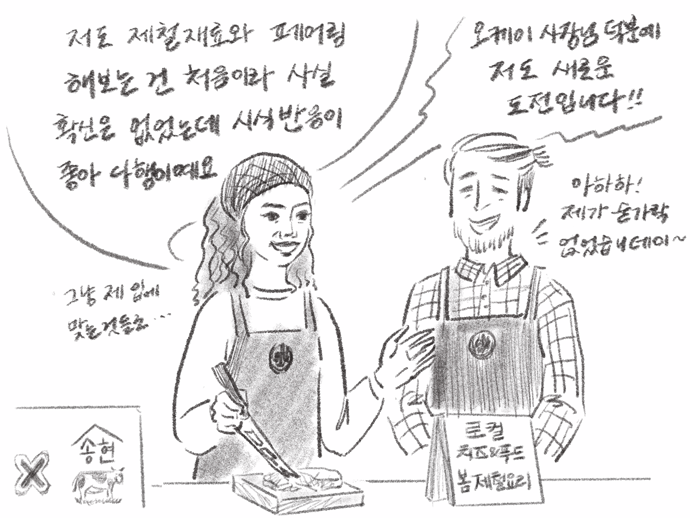 저도 제철재료와 페어링
해보는 건 처음이라 사실
확신은 없었는데 시식반응이
좋아 다행이예요
오케이 사장님 덕분에
저도 새로운
도전입니다!!
아하하!
제가 손가락
없었습니데이~
그냥 제 입에
맞는것들로...
송현
로컬
치즈&푸드
봄 제철요리